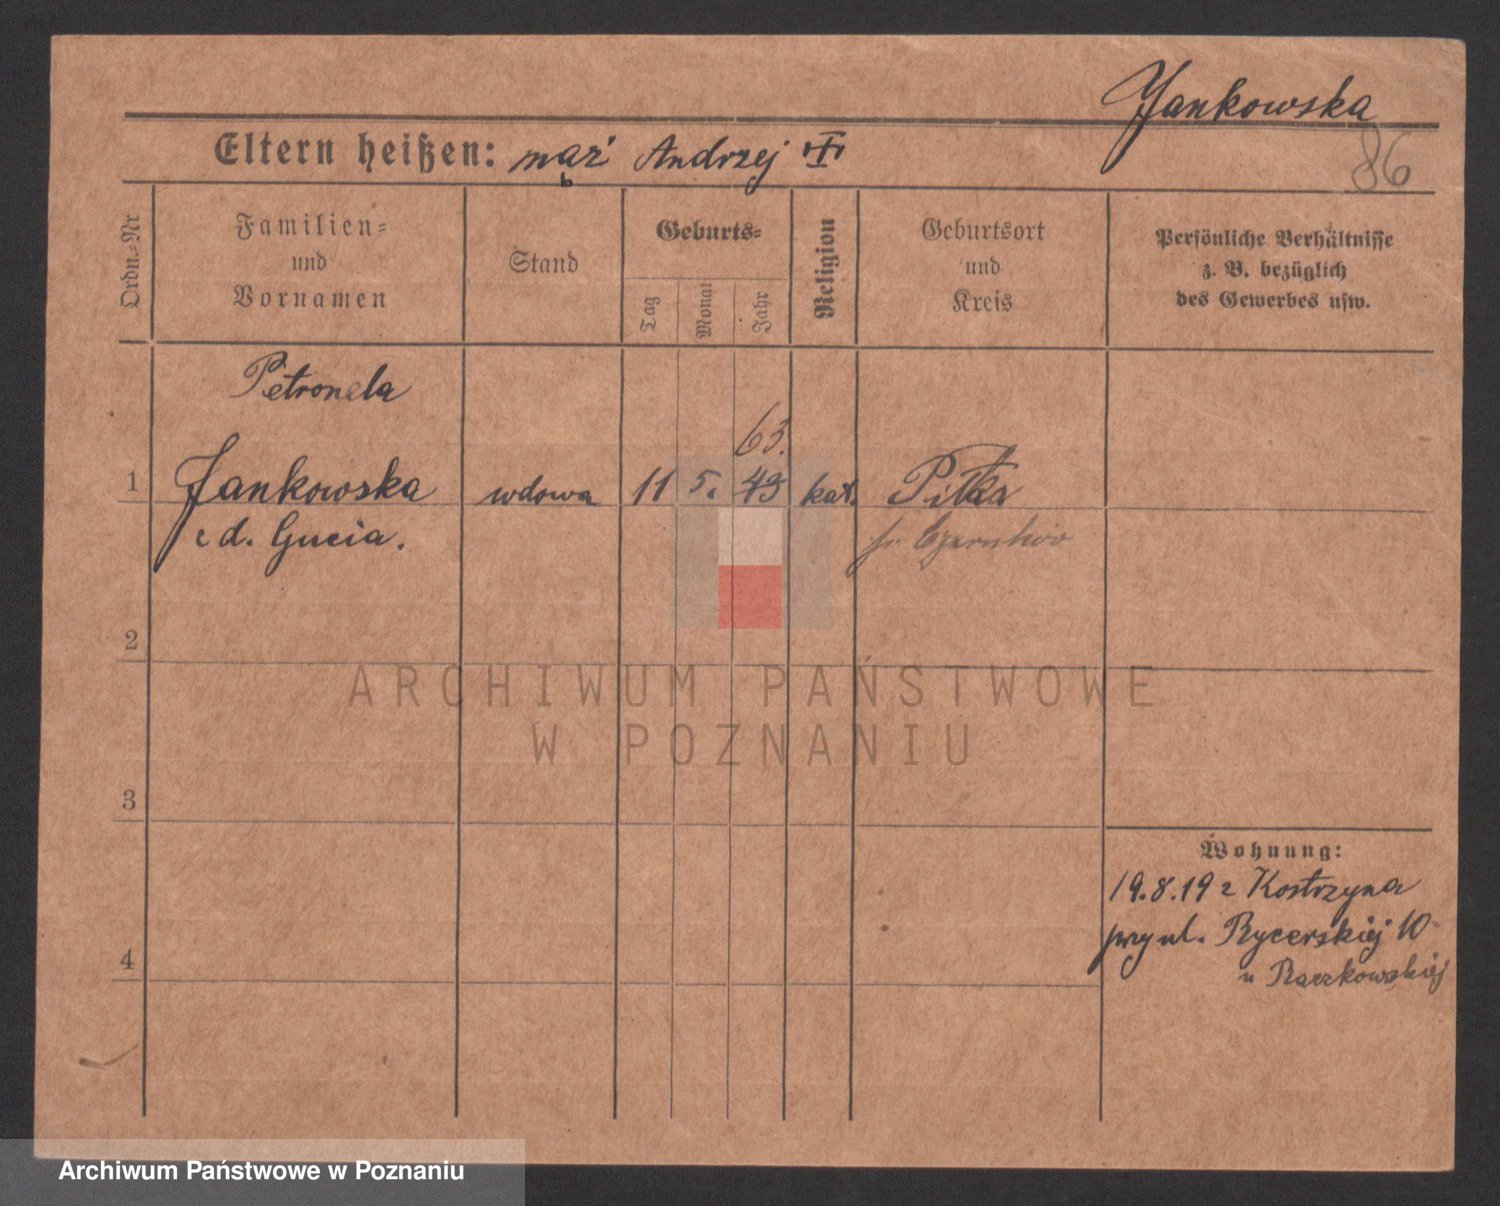 Jankowska
86
Eltern heißen: mąż Andrzej
Ordn.=Nr
Familien=
und
Vornamen
Stand
Geburts=
Tag
Monat
Jahr
Religion
Geburtsort
und
Kreis
Persönliche Verhältnisse
z. B. bezüglich
des Gewerbes usw.
Petronela
63.
1 Jankowska wdowa 11 5. 49 kat. Piłka
z d. Gucia.
2
3
4
Wohnung:
19.8.19 z Kostrzyna
przy ul. Rycerskiej 10
u Raczkowskiej
ARCHIWUM PAŃSTWOWE
W POZNANIU
Archiwum Państwowe w Poznaniu